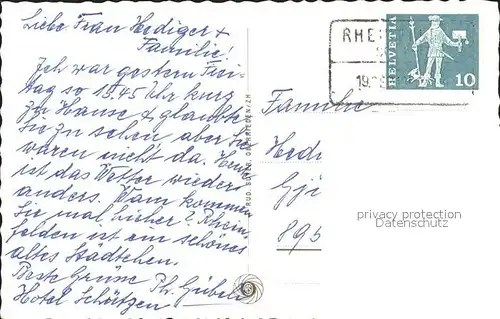 Liebe Frau Hediger +
Familie!
Ich war gestern Frei-
tag so 15.45 Uhr kurz
zu Hause & glaubte
Sie zu sehen aber Sie
waren nicht da. Heute
ist das Wetter wieder
anders. Wann kommen
Sie mal hieher? Rhein-
felden ist ein schönes
altes Städtchen.
Beste Grüsse Ph.
Hotel Schützen
RUD. SUTER, OBERRIEDEN/ZH
RHEI
19.
HELVETIA
10
Familie
Hedi
895
privacy protection
Datenschutz